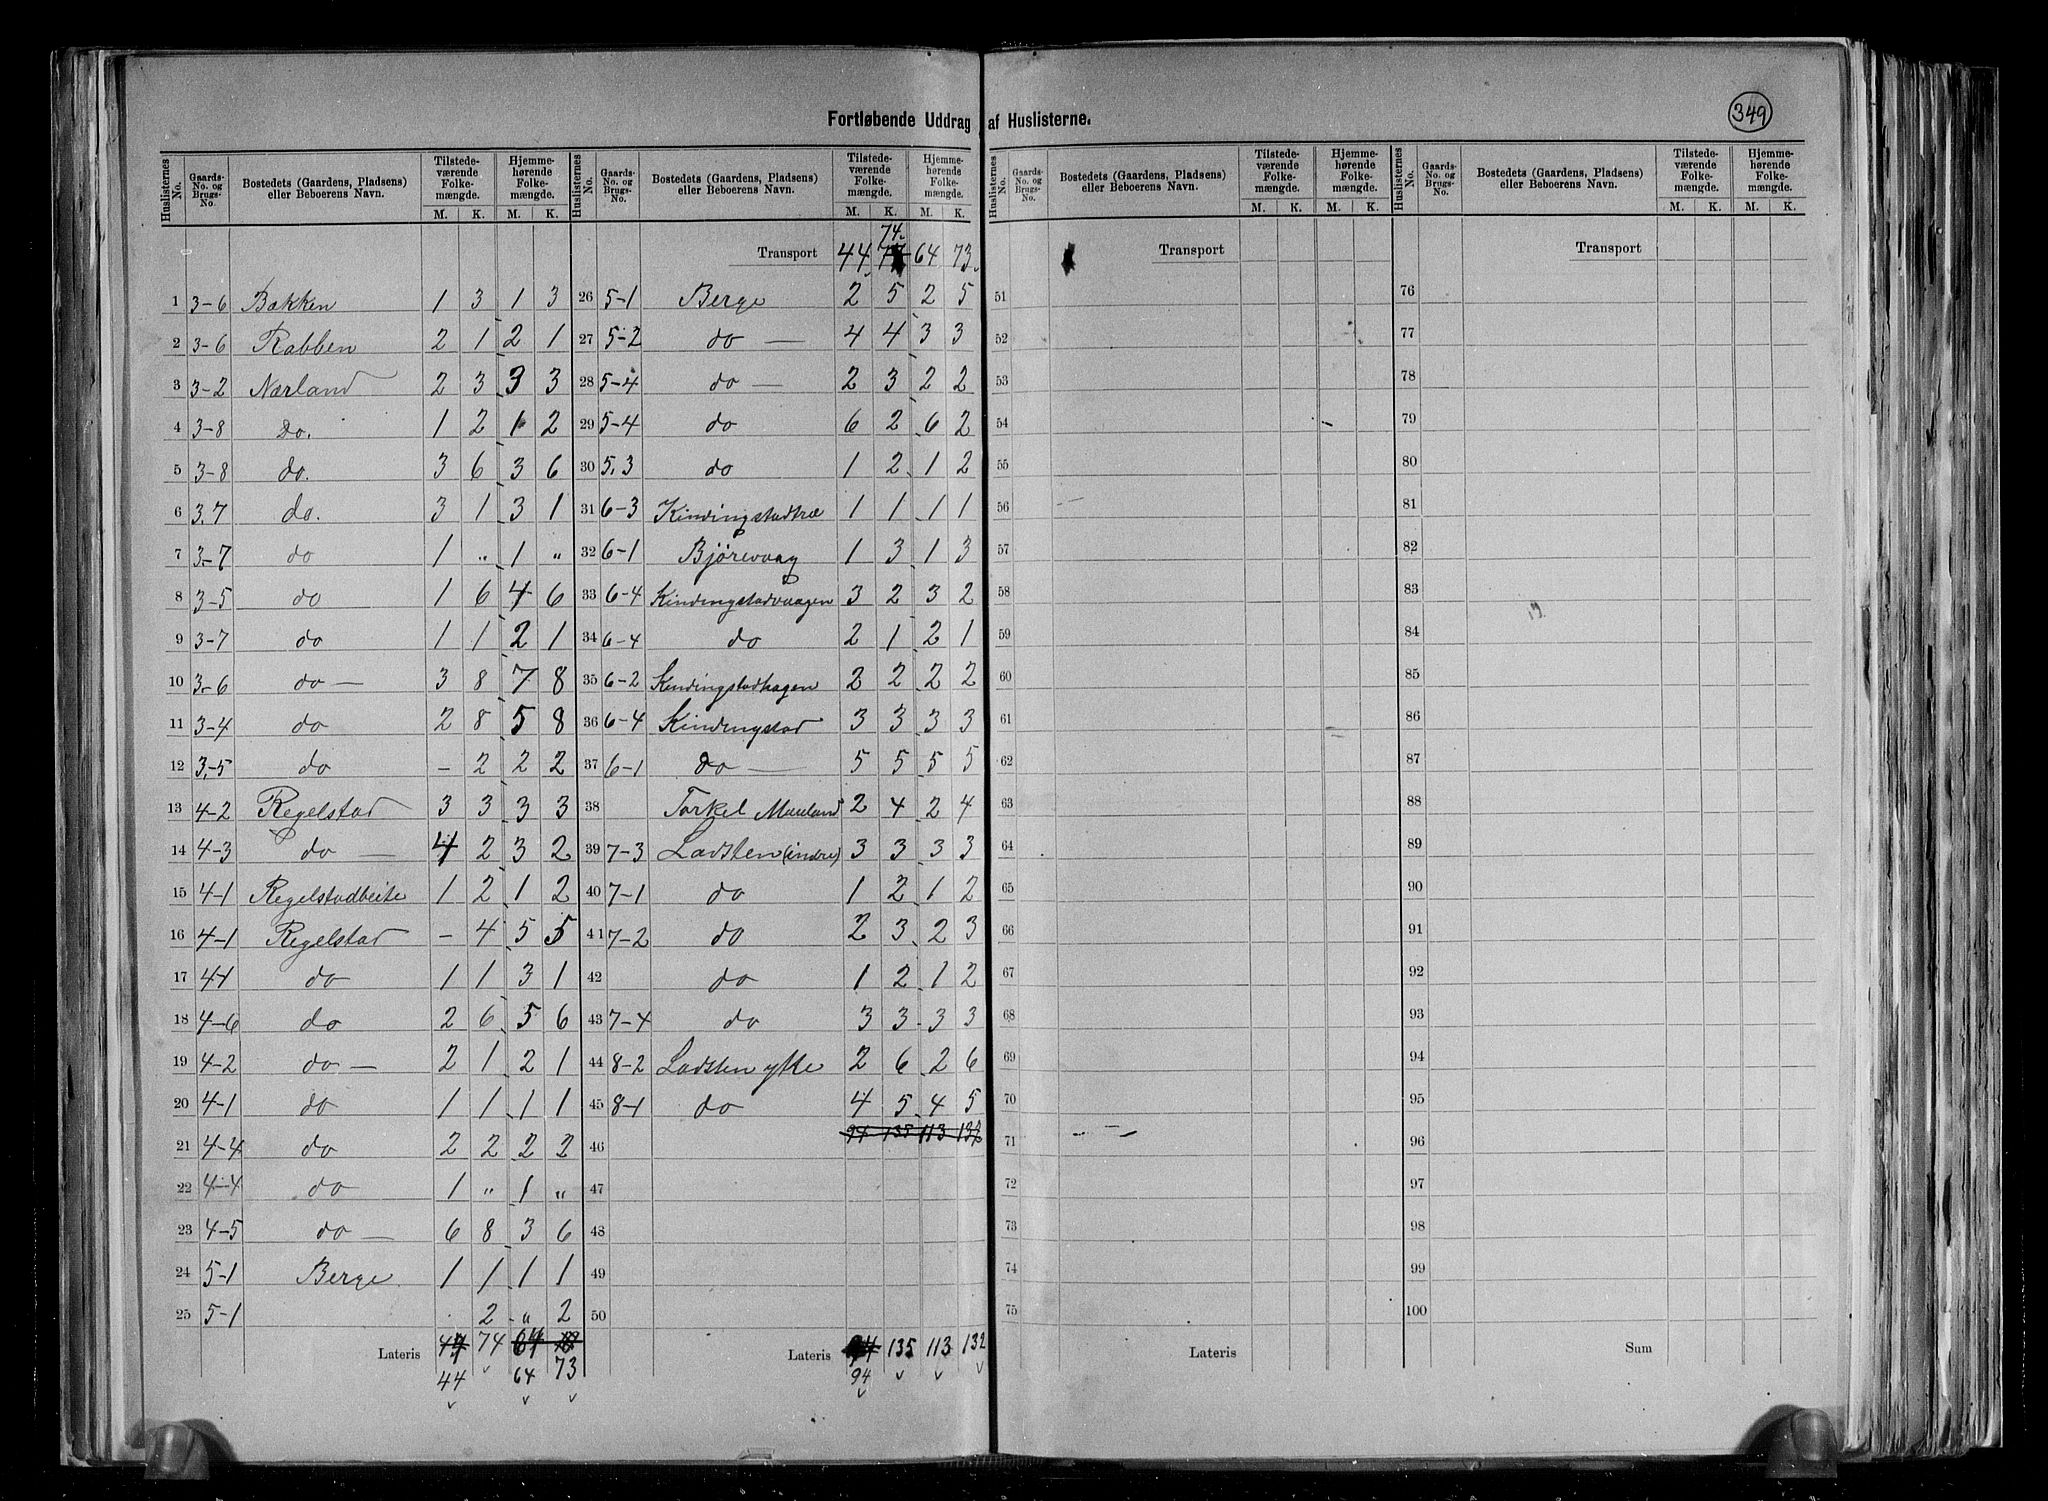 Fortløbende Uddrag af Huslisterne.
349
Huslisternes No. Gaards-No. og Brugs-No. Bostedets (Gaardens, Pladsens) eller Beboerens Navn. Tilstedeværende Folkemængde. M. K. Hjemmehørende Folkemængde. M. K.
1 3-6 Bakken 1 3 1 3
2 3-6 Rabben 2 1 2 1
3 3-2 Nærland 2 3 3 3
4 3-8 Do. 1 2 1 2
5 3-8 do. 3 6 3 6
6 3,7 do. 3 1 3 1
7 3-7 do 1 " 1 "
8 3-5 do 1 6 4 6
9 3-7 do 1 1 2 1
10 3-6 do — 3 8 7 8
11 3-4 do 2 8 5 8
12 3-5 do - 2 2 2
13 4-2 Regelstad 3 3 3 3
14 4-3 do — 4 2 3 2
15 4-1 Regelstadbeite 1 2 1 2
16 4-1 Regelstad - 4 5 5
17 4-1 do 1 1 3 1
18 4-6 do 2 6 5 6
19 4-2 do — 2 1 2 1
20 4-1 do 1 1 1 1
21 4-4 do 2 2 2 2
22 4-4 do 1 " 1 "
23 4-5 do — 6 8 3 6
24 5-1 Berge 1 1 1 1
25 5-1 2 " 2
Lateris 74
44 64 73
Huslisternes No. Gaards-No. og Brugs-No. Bostedets (Gaardens, Pladsens) eller Beboerens Navn. Tilstedeværende Folkemængde. M. K. Hjemmehørende Folkemængde. M. K.
74.
Transport 44 64 73
26 5-1 Berge 2 5 2 5
27 5-2 do — 4 4 3 3
28 5-4 do — 2 3 2 2
29 5-4 do 6 2 6 2
30 5,3 do 1 2 1 2
31 6-3 Kindingstadtræ 1 1 1 1
32 6-1 Bjørevaag 1 3 1 3
33 6-4 Kindingstadvaagen 3 2 3 2
34 6-4 do 2 1 2 1
35 6-2 Kindingstadhagen 2 2 2 2
36 6-4 Kindingstad 3 3 3 3
37 6-1 Do — 5 5 5 5
38 Torkel Mauland 2 4 2 4
39 7-3 Ladsten (indre) 3 3 3 3
40 7-1 do 1 2 1 2
41 7-2 do 2 3 2 3
42 do 1 2 1 2
43 7-4 do 3 3 3 3
44 8-2 Ladsten ytre 2 6 2 6
45 8-1 do 4 5 4 5
46 94 135 113 132
47
48
49
50
Lateris 135 113 132
94
Huslisternes No. Gaards-No. og Brugs-No. Bostedets (Gaardens, Pladsens) eller Beboerens Navn. Tilstedeværende Folkemængde. M. K. Hjemmehørende Folkemængde. M. K.
Transport
51
52
53
54
55
56
57
58
59
60
61
62
63
64
65
66
67
68
69
70
71
72
73
74
75
Lateris
Huslisternes No. Gaards-No. og Brugs-No. Bostedets (Gaardens, Pladsens) eller Beboerens Navn. Tilstedeværende Folkemængde. M. K. Hjemmehørende Folkemængde. M. K.
Transport
76
77
78
79
80
81
82
83
84
85
86
87
88
89
90
91
92
93
94
95
96
97
98
99
100
Sum